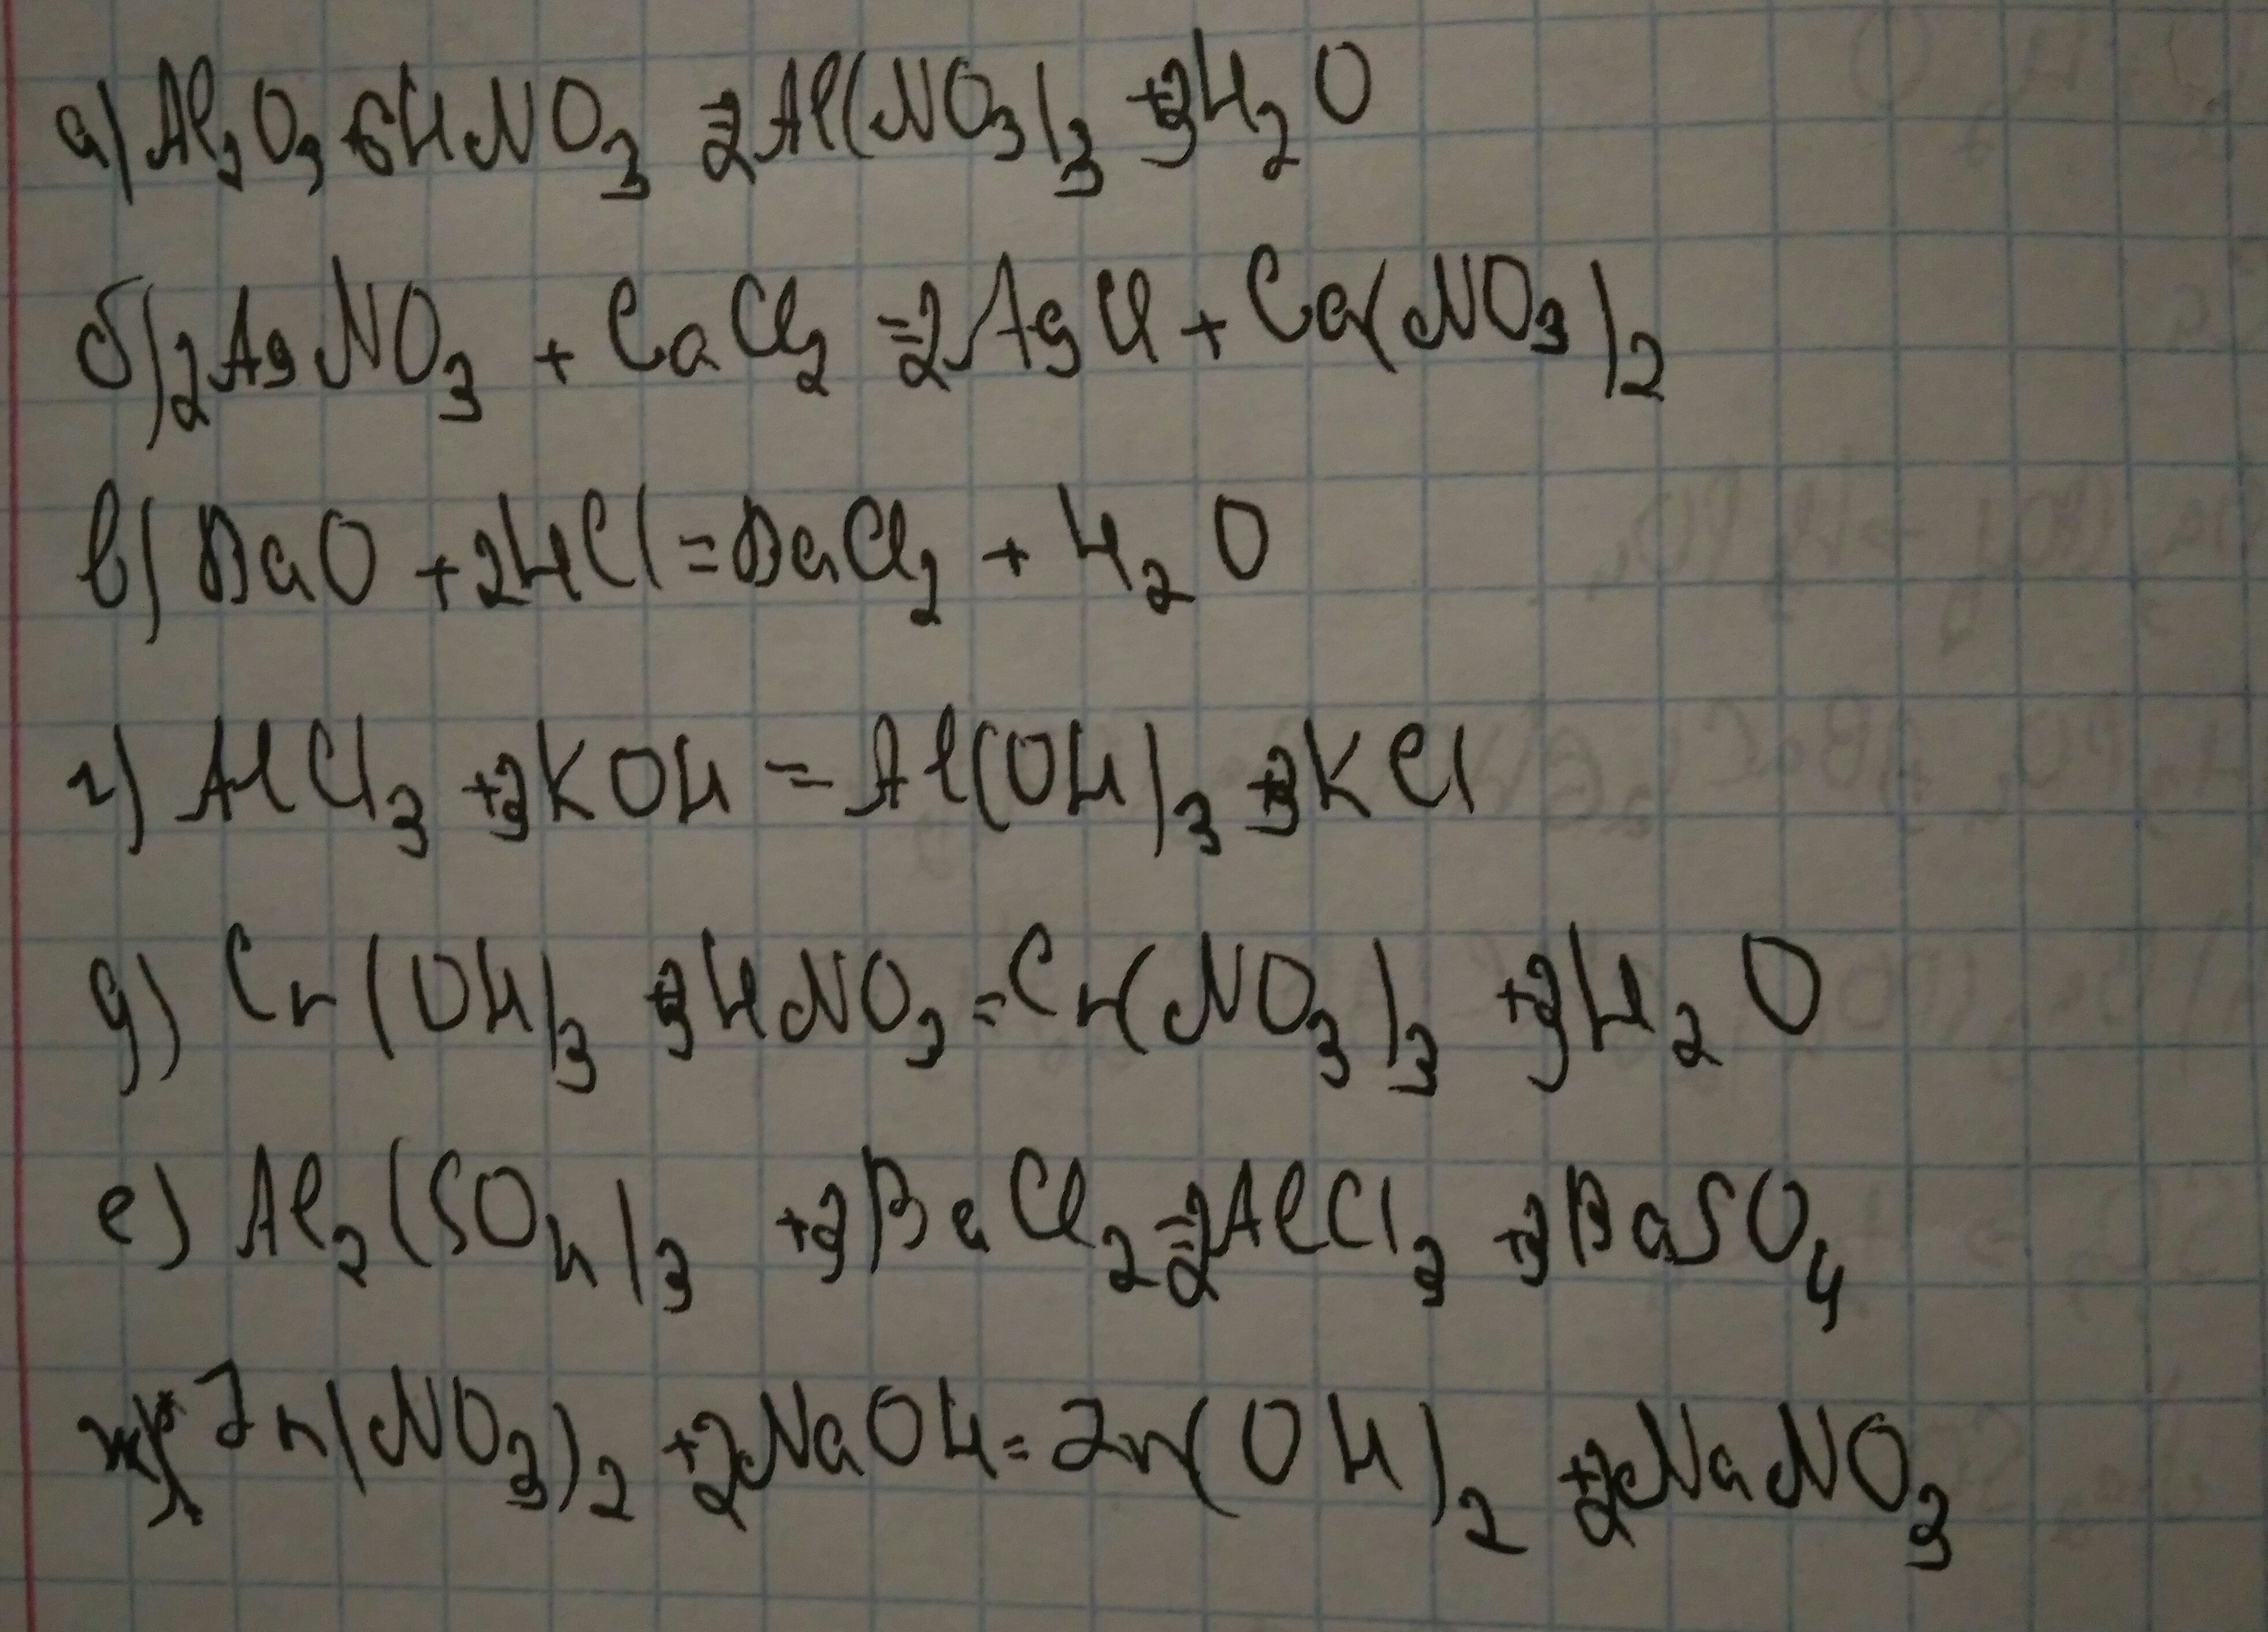 а) Al₂O₃ + 6HNO₃ = 2Al(NO₃)₃ + 3H₂O
б) 2AgNO₃ + CaCl₂ = 2AgCl + Ca(NO₃)₂
в) BaO + 2HCl = BaCl₂ + H₂O
г) AlCl₃ + 3KOH = Al(OH)₃ + 3KCl
д) Cr(OH)₃ + 3HNO₃ = Cr(NO₃)₃ + 3H₂O
е) Al₂(SO₄)₃ + 3BaCl₂ = 2AlCl₃ + 3BaSO₄
ж) Zn(NO₃)₂ + 2NaOH = Zn(OH)₂ + 2NaNO₃